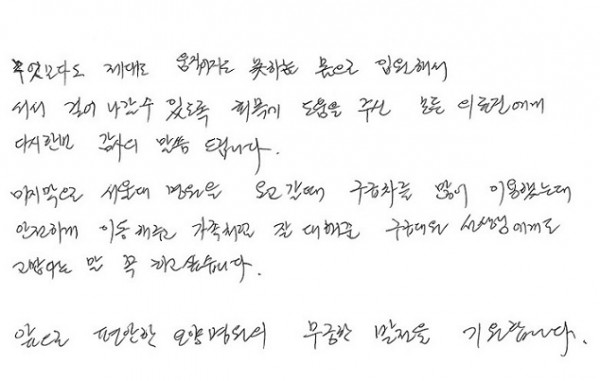 무엇보다도 제대로 움직이지도 못하는 몸으로 입원해서
서서 걸어 나갈수 있도록 회복에 도움을 주신 모든 의료진에게
다시한번 감사의 말씀 드립니다.
마지막으로 서울대 병원을 오고갈때 구급차를 많이 이용했는데
안전하게 이동해주고 가족처럼 잘 대해준 구급대원 선생님에게도
고맙다는 말 꼭 하고싶습니다.
앞으로 편안한 요양병원의 무궁한 발전을 기원합니다.